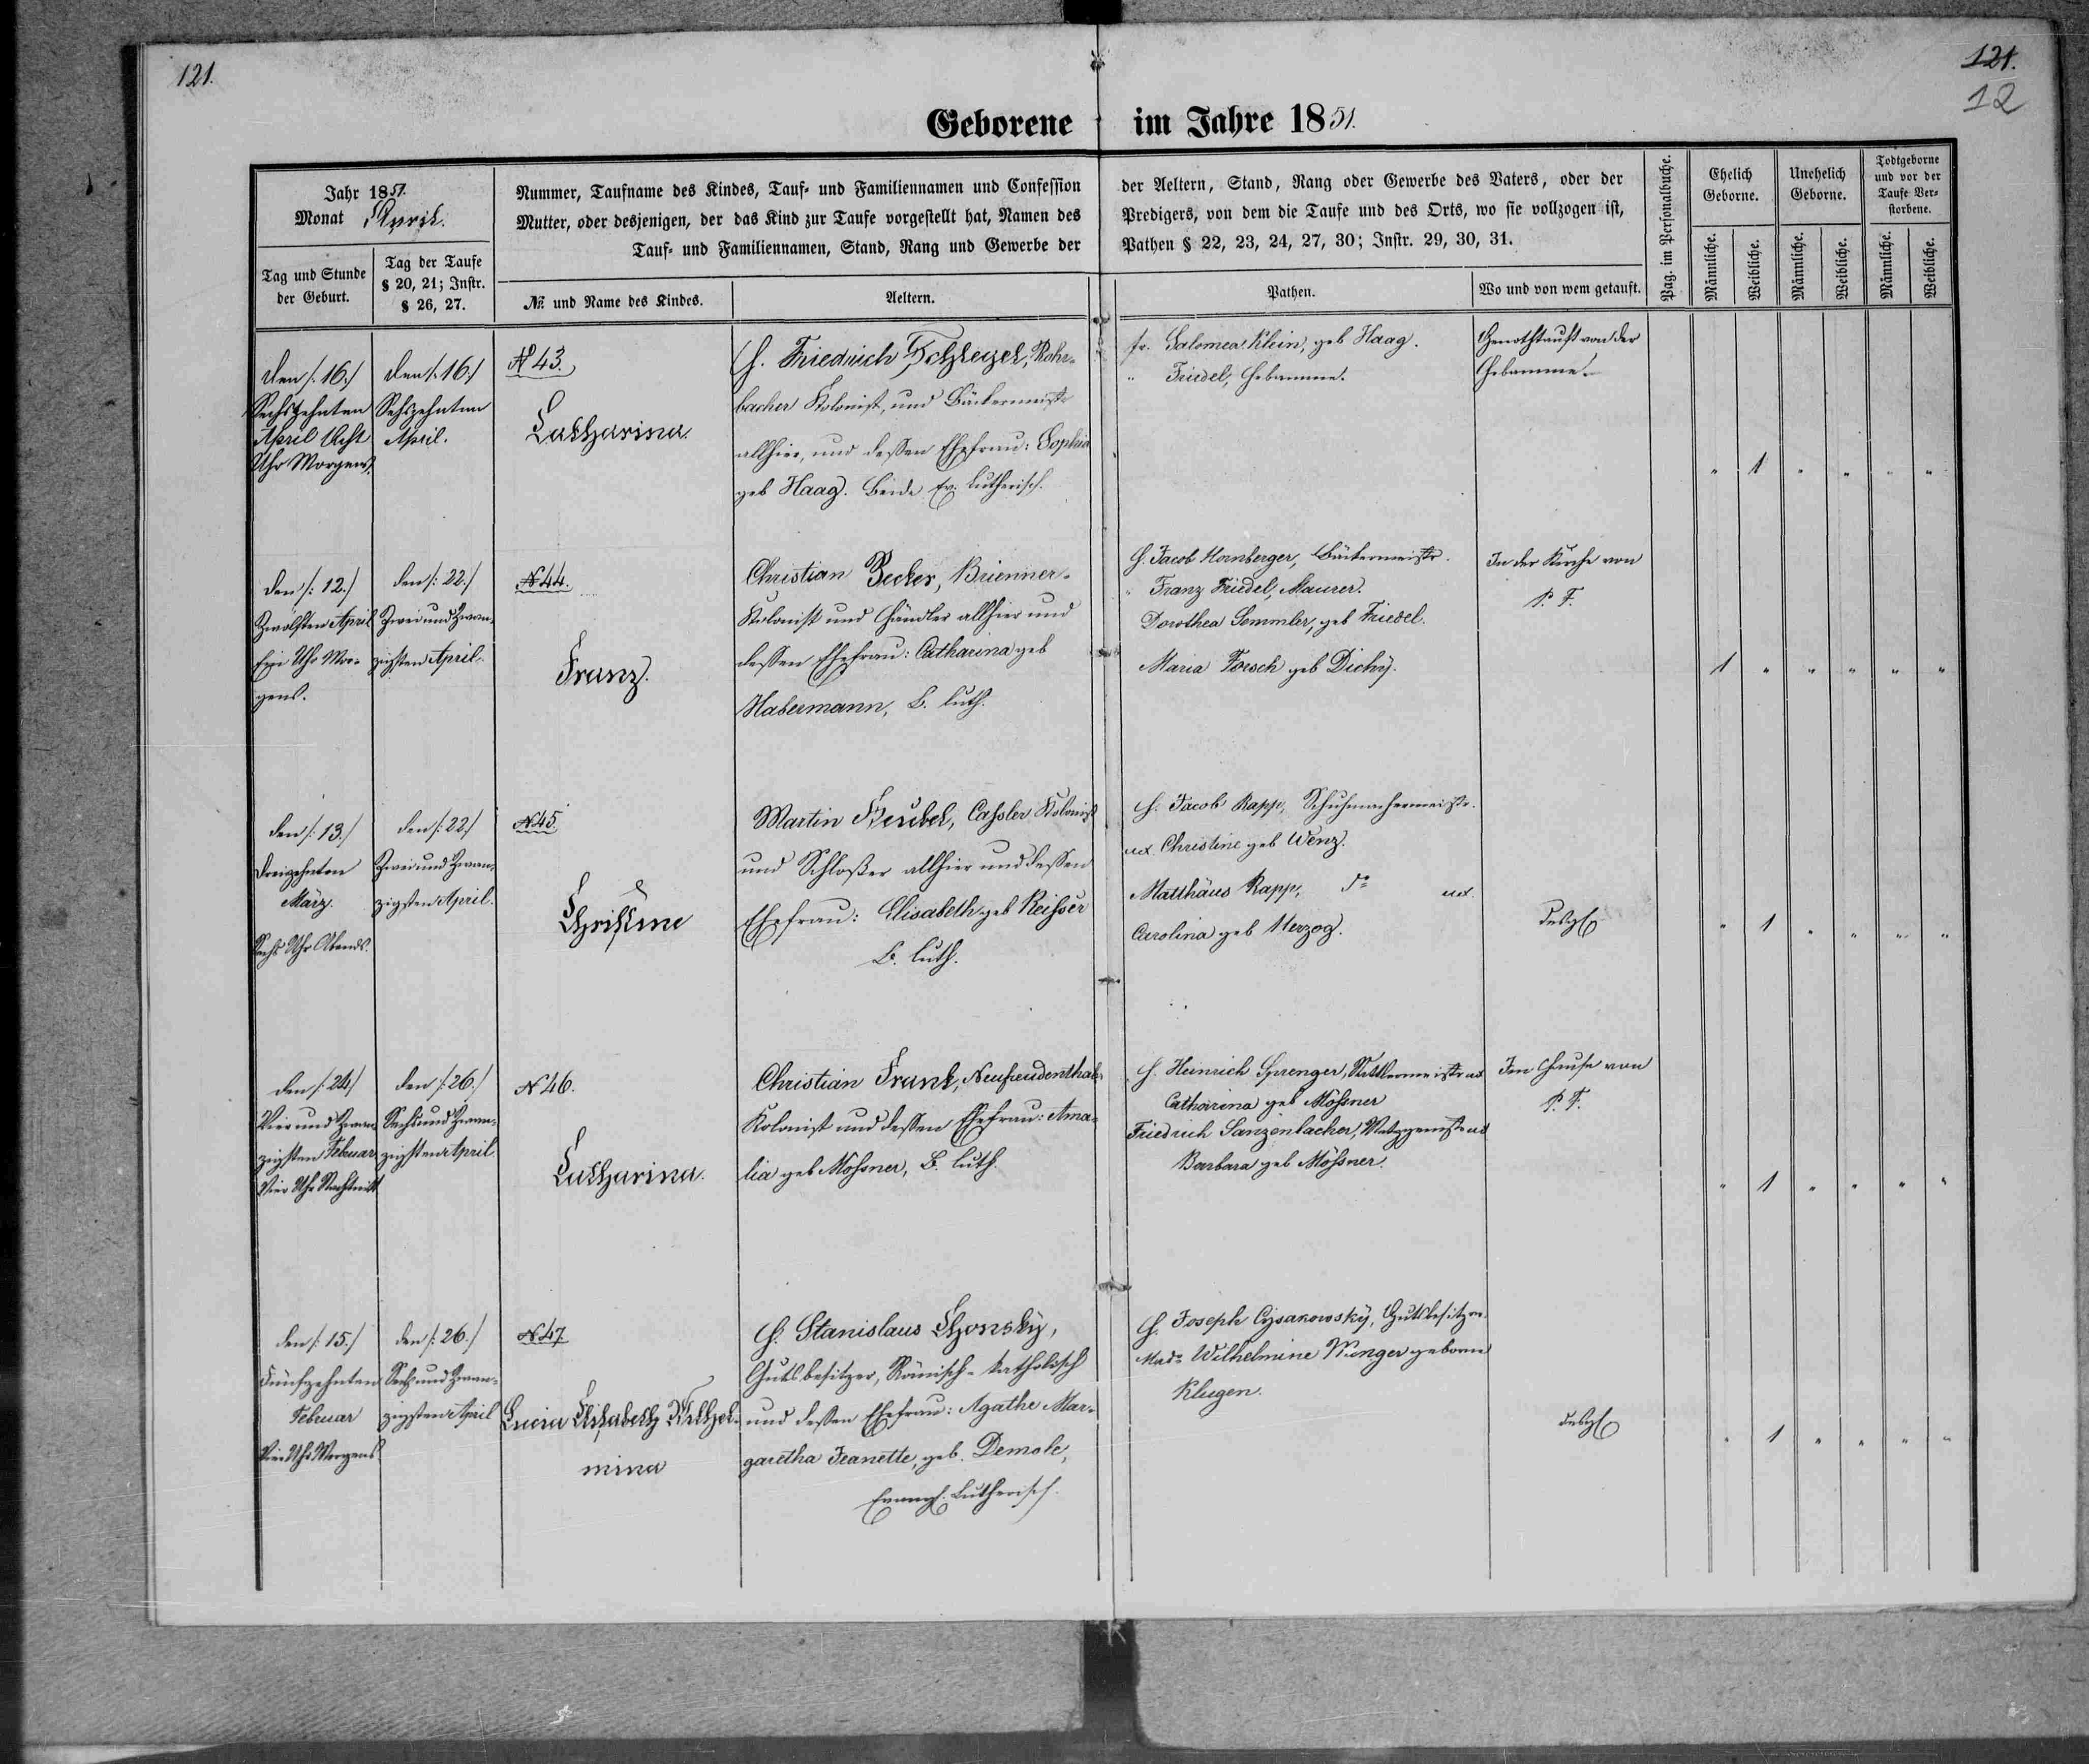 121.
121.
12
Geborene im Jahre 1851.
Jahr 1851.
Monat April.
Tag und Stunde der Geburt.
Tag der Taufe § 20, 21; Instr. § 26, 27.
Nummer, Taufname des Kindes, Tauf- und Familiennamen und Confession der Aeltern, Stand, Rang oder Gewerbe des Vaters, oder der
Mutter, oder desjenigen, der das Kind zur Taufe vorgestellt hat, Namen des Predigers, von dem die Taufe und des Orts, wo sie vollzogen ist,
Tauf- und Familiennamen, Stand, Rang und Gewerbe der Pathen § 22, 23, 24, 27, 30; Instr. 29, 30, 31.
№ und Name des Kindes.
Aeltern.
Pathen.
Wo und von wem getauft.
Pag. im Personalbuche.
Ehelich Geborne.
Unehelich Geborne.
Todtgeborne und vor der Taufe Verstorbene.
Männliche.
Weibliche.
Männliche.
Weibliche.
Männliche.
Weibliche.
den /: 16./
Sechszehnten
April Acht
Uhr Morgens.
den /: 16./
Sechszehnten
April.
N 43.
Catharina.
H. Friedrich Schlegel, Rohr-
bacher Kolonist, und Bäckermeister
allhier, und dessen Ehefrau: Sophia
geb Haag. Beide Ev. Lutherisch.
Fr. Salomea Klein, geb Haag.
" Friedel, Hebamme.
Genothtauft von der
Hebamme.
" 1 " " " "
den /: 12./
Zwölften April
Ein Uhr Mor-
gens.
den /: 22./
Zwei und Zwan-
zigsten April.
N 44.
Franz.
Christian Becker, Brienner-
Kolonist und Händler allhier und
dessen Ehefrau: Catharina geb
Habermann, B. luth.
H. Jacob Hornberger, Bäckermeister.
" Franz Friedel, Maurer.
Dorothea Semmler, geb Friedel.
Maria Forsch geb Dichÿ.
In der Kirche von
P. F.
1 " " " " "
den /: 13./
Dreizehnten
März.
Sechs Uhr Abends.
den /: 22./
Zwei und Zwan-
zigsten April.
N 45.
Christine
Martin Keubel, Cassler Kolonist
und Schlosser allhier und dessen
Ehefrau: Elisabeth geb Reisser
B. luth.
H. Jacob Rapp, Schuhmachermeister.
ux. Christine geb Wenz.
Matthäus Rapp, do ux.
Carolina geb Herzog.
desgl
" 1 " " " "
den /: 24./
Vier und Zwan-
zigsten Februar
Vier Uhr Nachmitt
den /: 26./
Sechs und Zwan-
zigsten April.
N 46.
Catharina.
Christian Frank, Neufreudenthal-
Kolonist und dessen Ehefrau: Ama-
lia geb Mössner, B. luth.
H. Heinrich Sprenger, Sattlermeister ux
Catharina geb Mössner
Friedrich Sanzenbacher, Metzgermstr ux
Barbara geb Mössner.
Im Hause von
P. F.
" 1 " " " "
den /: 15./
Fünfzehnten
Februar
Vier Uhr Morgens
den /: 26./
Sechs und Zwan-
zigsten April
N 47
Lucia Elisabeth Wilhel-
mina
H. Stanislaus Chonskÿ,
Gutsbesitzer, Römisch-katholisch
und dessen Ehefrau: Agathe Mar-
garetha Jeanette, geb. Demole,
Evangl. Lutherisch.
H. Joseph Cysanowskÿ, Gutsbesitzer.
Mad: Wilhelmine Wenger geborene
Klugen.
desgl
" 1 " " " "